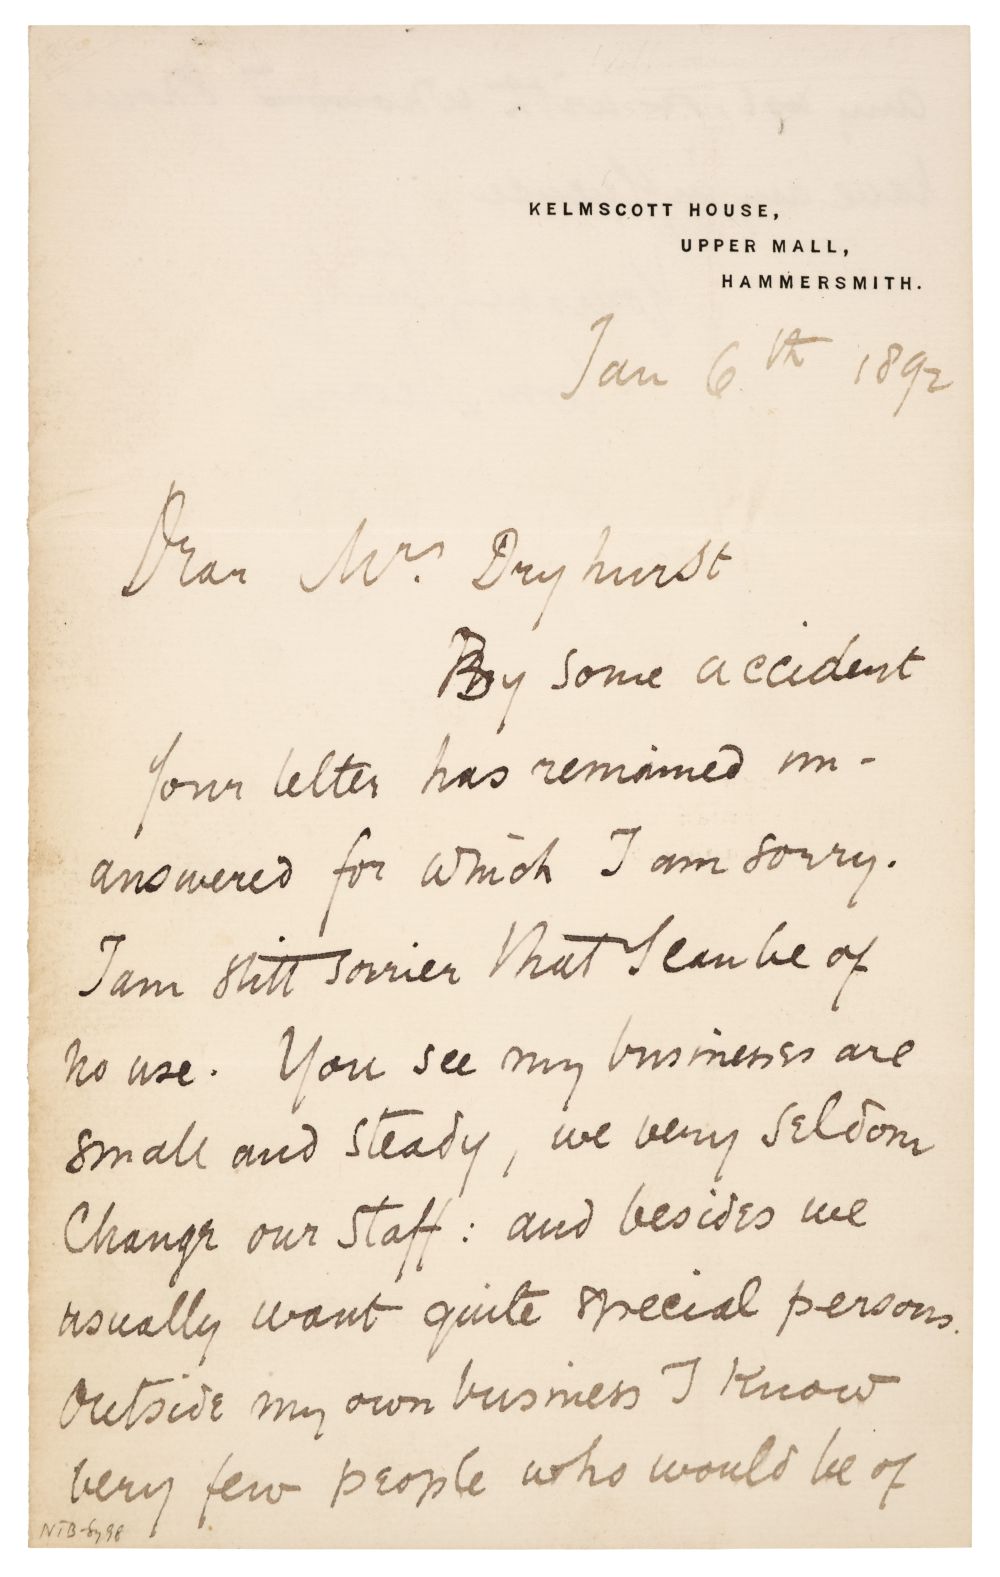 KELMSCOTT HOUSE,
UPPER MALL,
HAMMERSMITH.
Jan 6th 1892
Dear Mrs. Dryhurst
By some accident
your letter has remained un-
answered for which I am sorry.
I am still sorrier that I can be of
no use. You see my businesses are
small and steady, we very seldom
change our staff: and besides we
usually want quite special persons.
Outside my own business I know
very few people who would be of